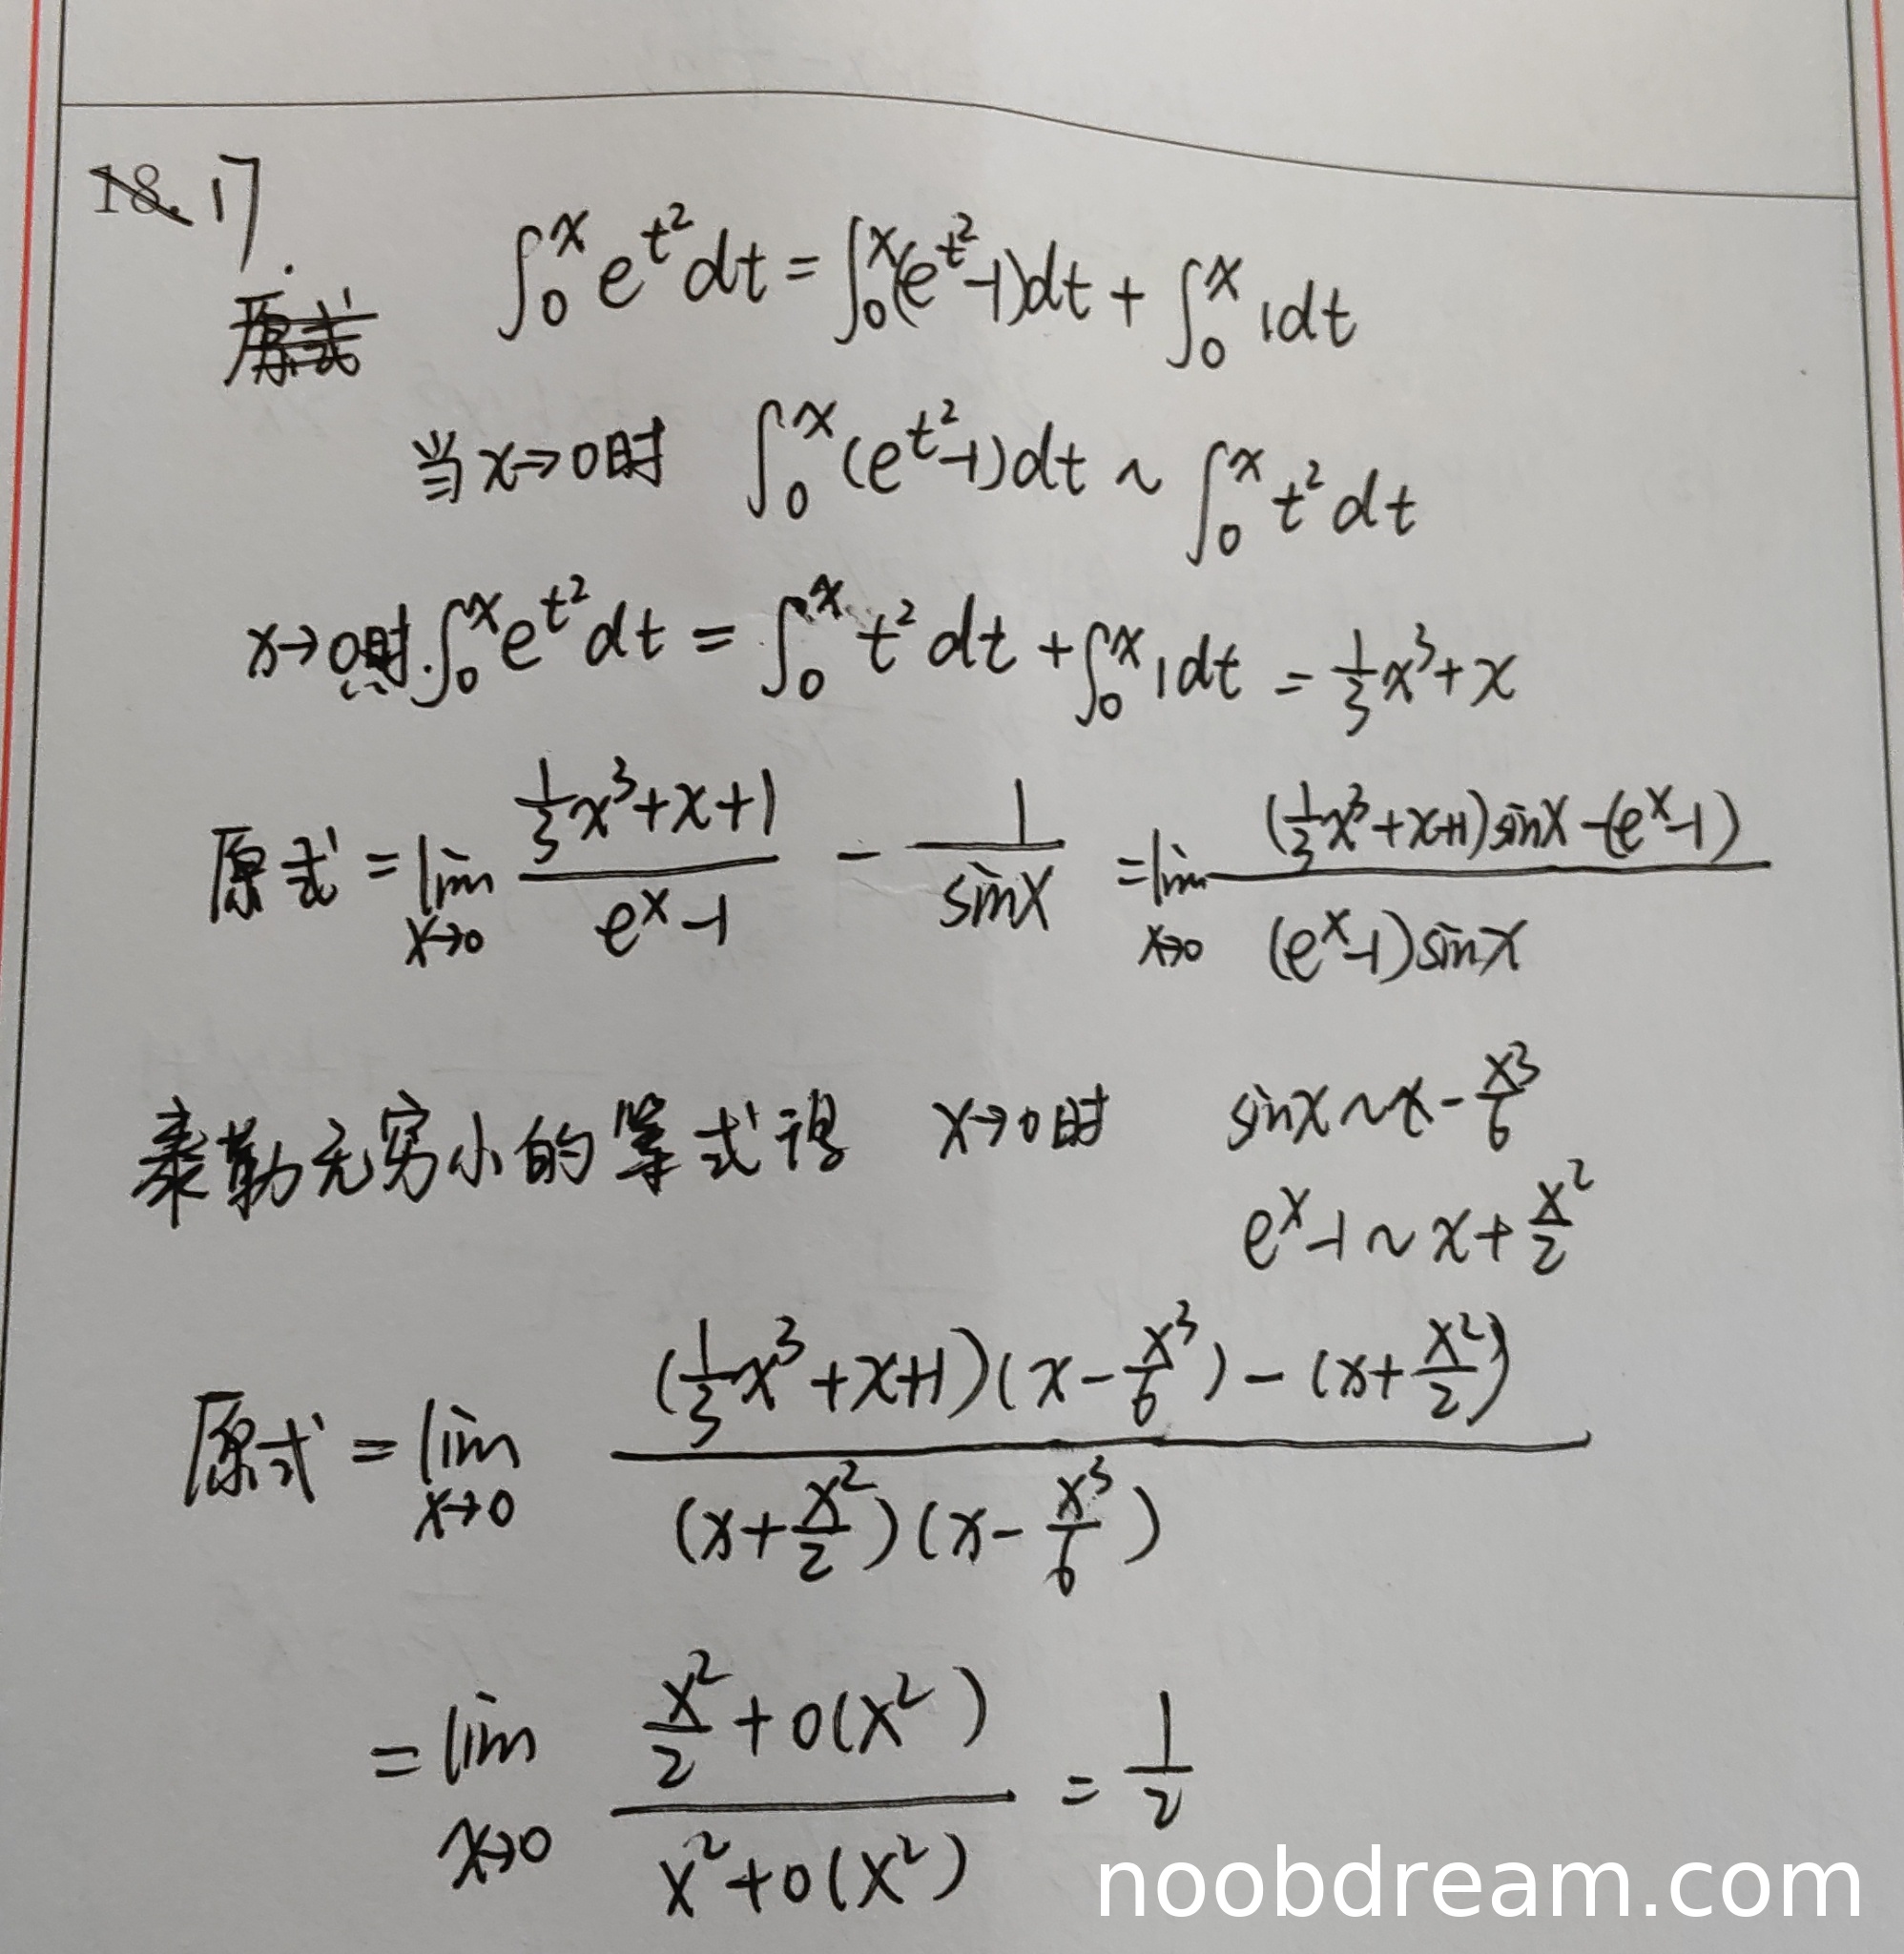 18. 17.
原式 ∫₀ˣ e^{t²}dt = ∫₀ˣ(e^{t²}-1)dt + ∫₀ˣ 1dt
当x→0时 ∫₀ˣ (e^{t²}-1)dt ~ ∫₀ˣ t² dt
x→0时.∫₀ˣ e^{t²}dt = ∫₀ˣ t² dt + ∫₀ˣ 1dt = \frac{1}{3}x³+x
原式 = lim_{x→0} \frac{\frac{1}{3}x³+x+1}{e^x-1} - \frac{1}{sinx} = lim_{x→0} \frac{(\frac{1}{3}x³+x+1)sinx-(e^x-1)}{(e^x-1)sinx}
泰勒无穷小的等式得 x→0时 sinx~x-\frac{x³}{6}
e^x-1~x+\frac{x²}{2}
原式 = lim_{x→0} \frac{(\frac{1}{3}x³+x+1)(x-\frac{x³}{6})-(x+\frac{x²}{2})}{(x+\frac{x²}{2})(x-\frac{x³}{6})}
= lim_{x→0} \frac{\frac{x²}{2}+o(x²)}{x²+o(x²)} = \frac{1}{2}
noobdream.com